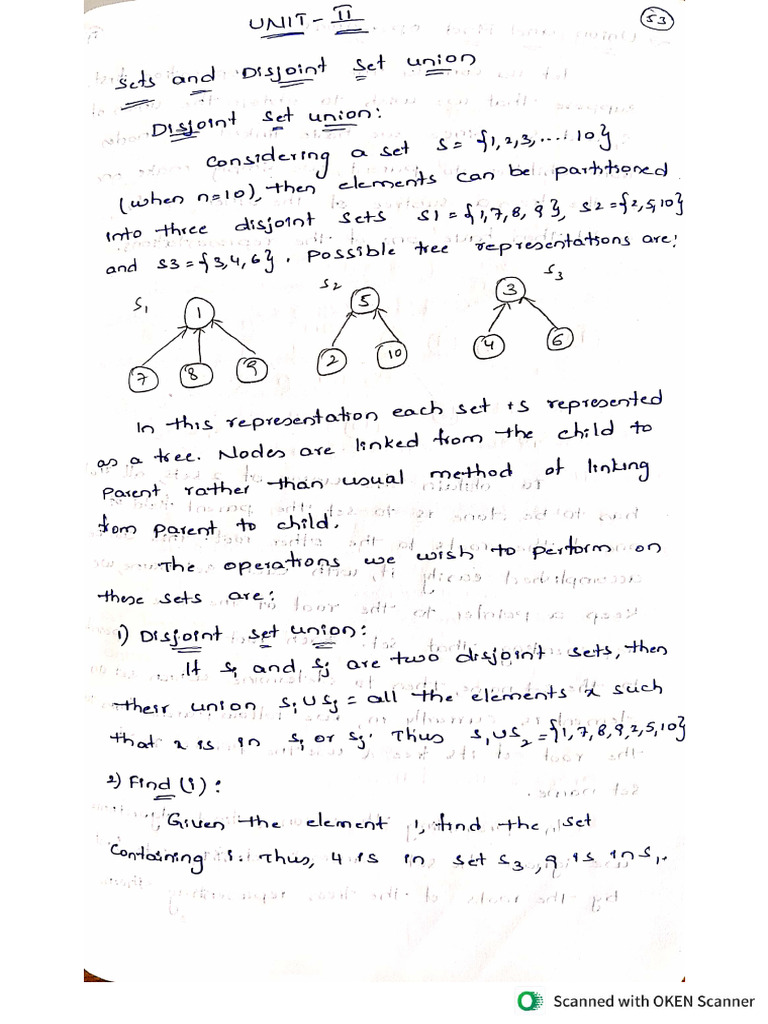 UNIT - II
53
Sets and Disjoint Set union
Disjoint set union:
Considering a set S = {1,2,3,....10}
(when n=10), then elements can be partitioned
into three disjoint sets S1 = {1,7,8,9}, S2 = {2,5,10}
and S3 = {3,4,6}. Possible tree representations are:
S1 S2 S3
1 5 3
7 8 9 2 10 4 6
In this representation each set is represented
as a tree. Nodes are linked from the child to
Parent rather than usual method of linking
from parent to child.
The operations we wish to perform on
these sets are:
1) Disjoint set union:
If Si and Sj are two disjoint sets, then
their union Si ∪ Sj = all the elements x such
that x is in Si or Sj. Thus S1 ∪ S2 = {1,7,8,9,2,5,10}
2) Find (i):
Given the element i, find the set
Containing i. Thus, 4 is in set S3, 9 is in S1.
Scanned with OKEN Scanner